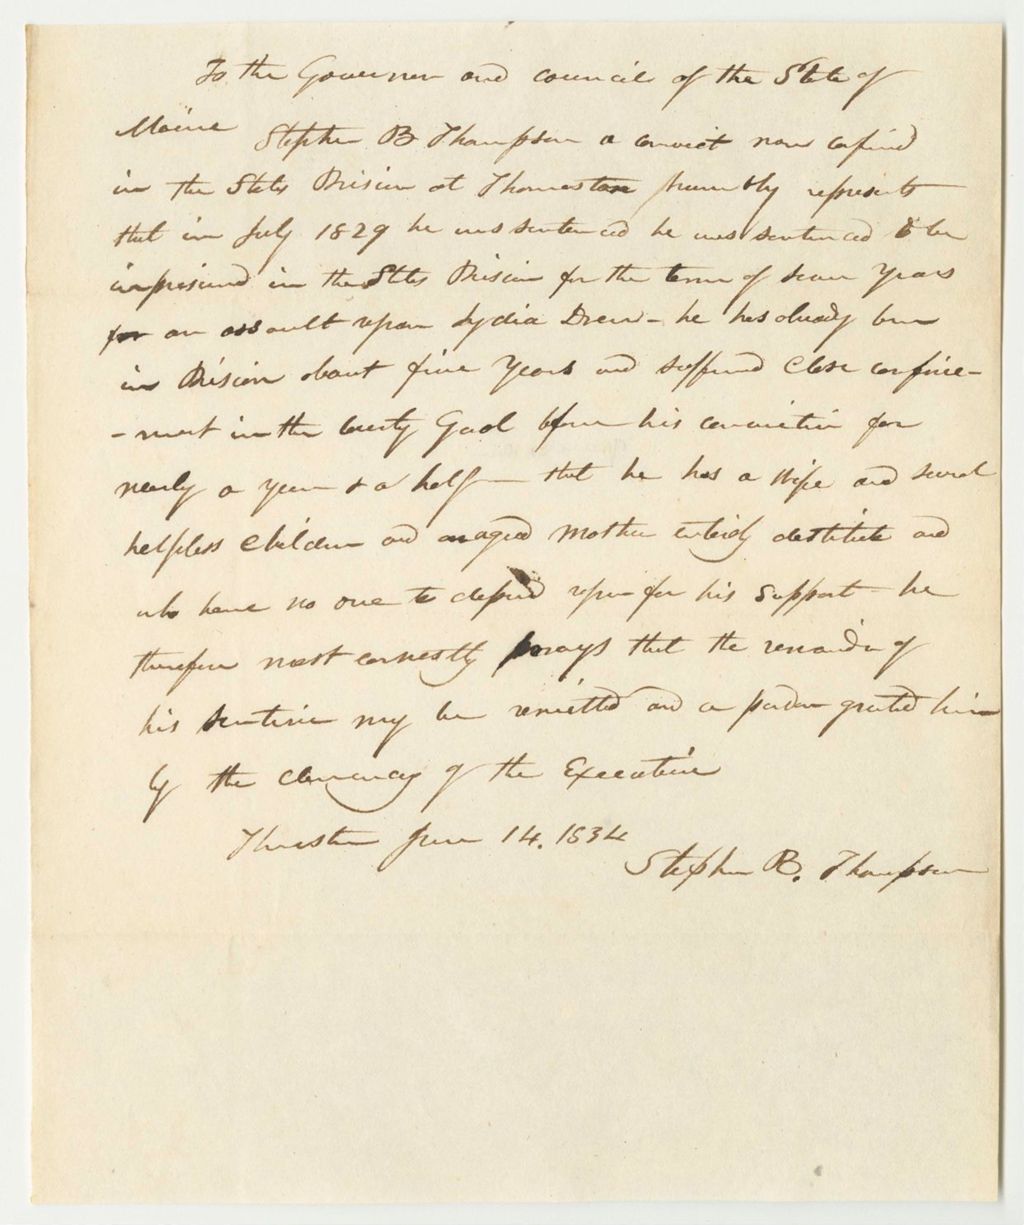 To the Governor and council of the State of
Maine Stephen B Thompson a convict now confined
in the States Prision at Thomaston humbly represents
that in July 1829 he was sentenced he was sentenced to be
imprisiond in the States Prision for the term of seven Years
for an assault upon Lydia Drew - he has already been
in Prision about five Years and suffered Close confine-
-ment in the County Gaol before his conviction for
nearly a year & a half - that he has a Wife and several
helpless Children and an aged Mother entirely destitute and
who have no one to depend upon for his Support - he
therefore most earnestly prays that the remainder of
his sentence may be remitted and a pardon granted him
by the clemency of the Executive
Thomaston June 14. 1834
Stephen B. Thompson